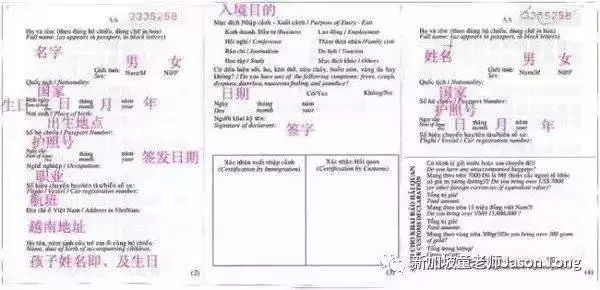 AA 3335258
Họ và tên (theo đúng hộ chiếu, dùng chữ in hoa)
Full name: (as appears in passport, in block letters)
名字
男 女
Giới tính: Nam/M Nữ/F
Sex:
Quốc tịch / Nationality:
国家
生日 日 月 年
Ngày sinh tháng năm
Date of birth month year
Nơi sinh / Place of birth:
出生地点
Số hộ chiếu / Passport Number:
护照号
Ngày cấp tháng năm
Date of issue: month year
签发日期
Nghề nghiệp / Occupation:
职业
Số hiệu chuyến bay/tên tàu/biển số xe:
Flight / Vessel / Car registration number:
航班
Địa chỉ ở Việt Nam / Address in VietNam:
越南地址
Họ tên, năm sinh của trẻ em đi cùng hộ chiếu:
Name, date of birth of accompanying children:
孩子姓名即、及生日
(2)
入境目的
Mục đích Nhập cảnh - Xuất cảnh / Purpose of Entry - Exit
Kinh doanh, Đầu tư / Business Lao động / Employment
Hội nghị / Conference Thăm thân nhân / Family visit
Báo chí / Journalism Du lịch / Tourism
Học tập / Study Mục đích khác / Others
Có dấu hiệu sốt, ho, khó thở, tiêu chảy, buồn nôn, vàng da hay
không? / Do you have any of the following symptoms: fever, cough,
dyspnea, diarrhea, nauseous feeling and jaundice?
Có/Yes Không/No
日期
Ngày tháng năm
Date month year
Người khai ký tên:
Signature of declarant:
签字
Xác nhận xuất nhập cảnh
(Certification by Immigration)
Xác nhận Hải quan
(Certification by Customs)
(3)
AA 3335258
Họ và tên (theo đúng hộ chiếu, dùng chữ in hoa)
Full name: (as appears in passport, in block letters)
姓名 男 女
Giới tính: Nam/M Nữ/F
Sex:
Quốc tịch / Nationality:
国家
Số hộ chiếu / Passport Number:
护照号
日 月 年
Ngày cấp tháng năm
Date of issue: month year
Số hiệu chuyến bay/tên tàu/biển số xe:
Flight / Vessel / Car registration number:
PHẦN DÀNH CHO KHAI BÁO HẢI QUAN
FOR CUSTOMS DECLARATION
Có hành lý gửi trước hoặc sau chuyến đi?/
Do you have any unaccompanied baggage?
Mang theo trên 7000 Đô la Mỹ (hoặc các ngoại tệ khác
có giá trị tương đương)?/ Do you bring over US$ 7000
(or other foreign currencies of equivalent value)?
Tổng trị giá/
Total amount:
Mang theo trên 15 triệu đồng Việt Nam?/
Do you bring over VNĐ 15,000,000 ?
Tổng trị giá/
Total amount:
Mang theo vàng trên 300gr?/Do you bring over 300 gram
of gold?
Tổng trọng lượng/
新加坡童老师Jason Tong